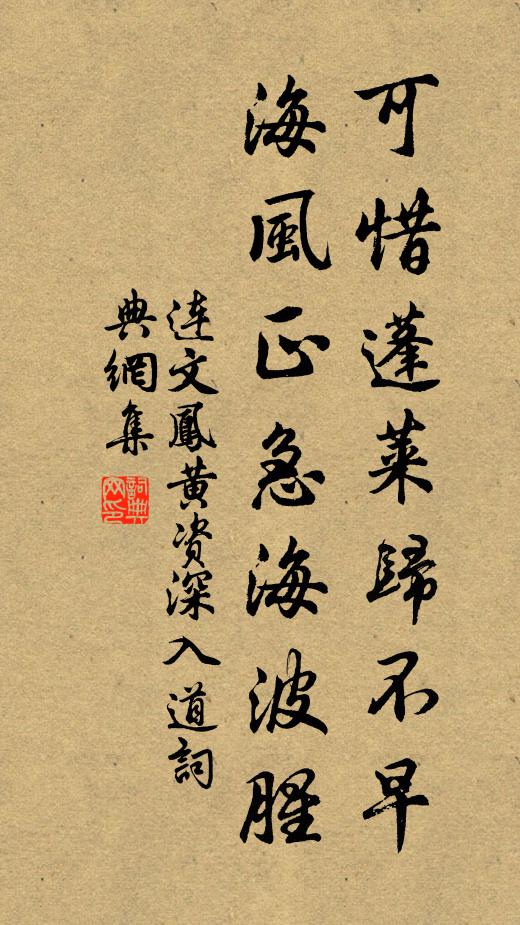 可惜蓬萊歸不早
海風正急海波腥
連文鳳黄資深入道詞
典網集
詞典網印